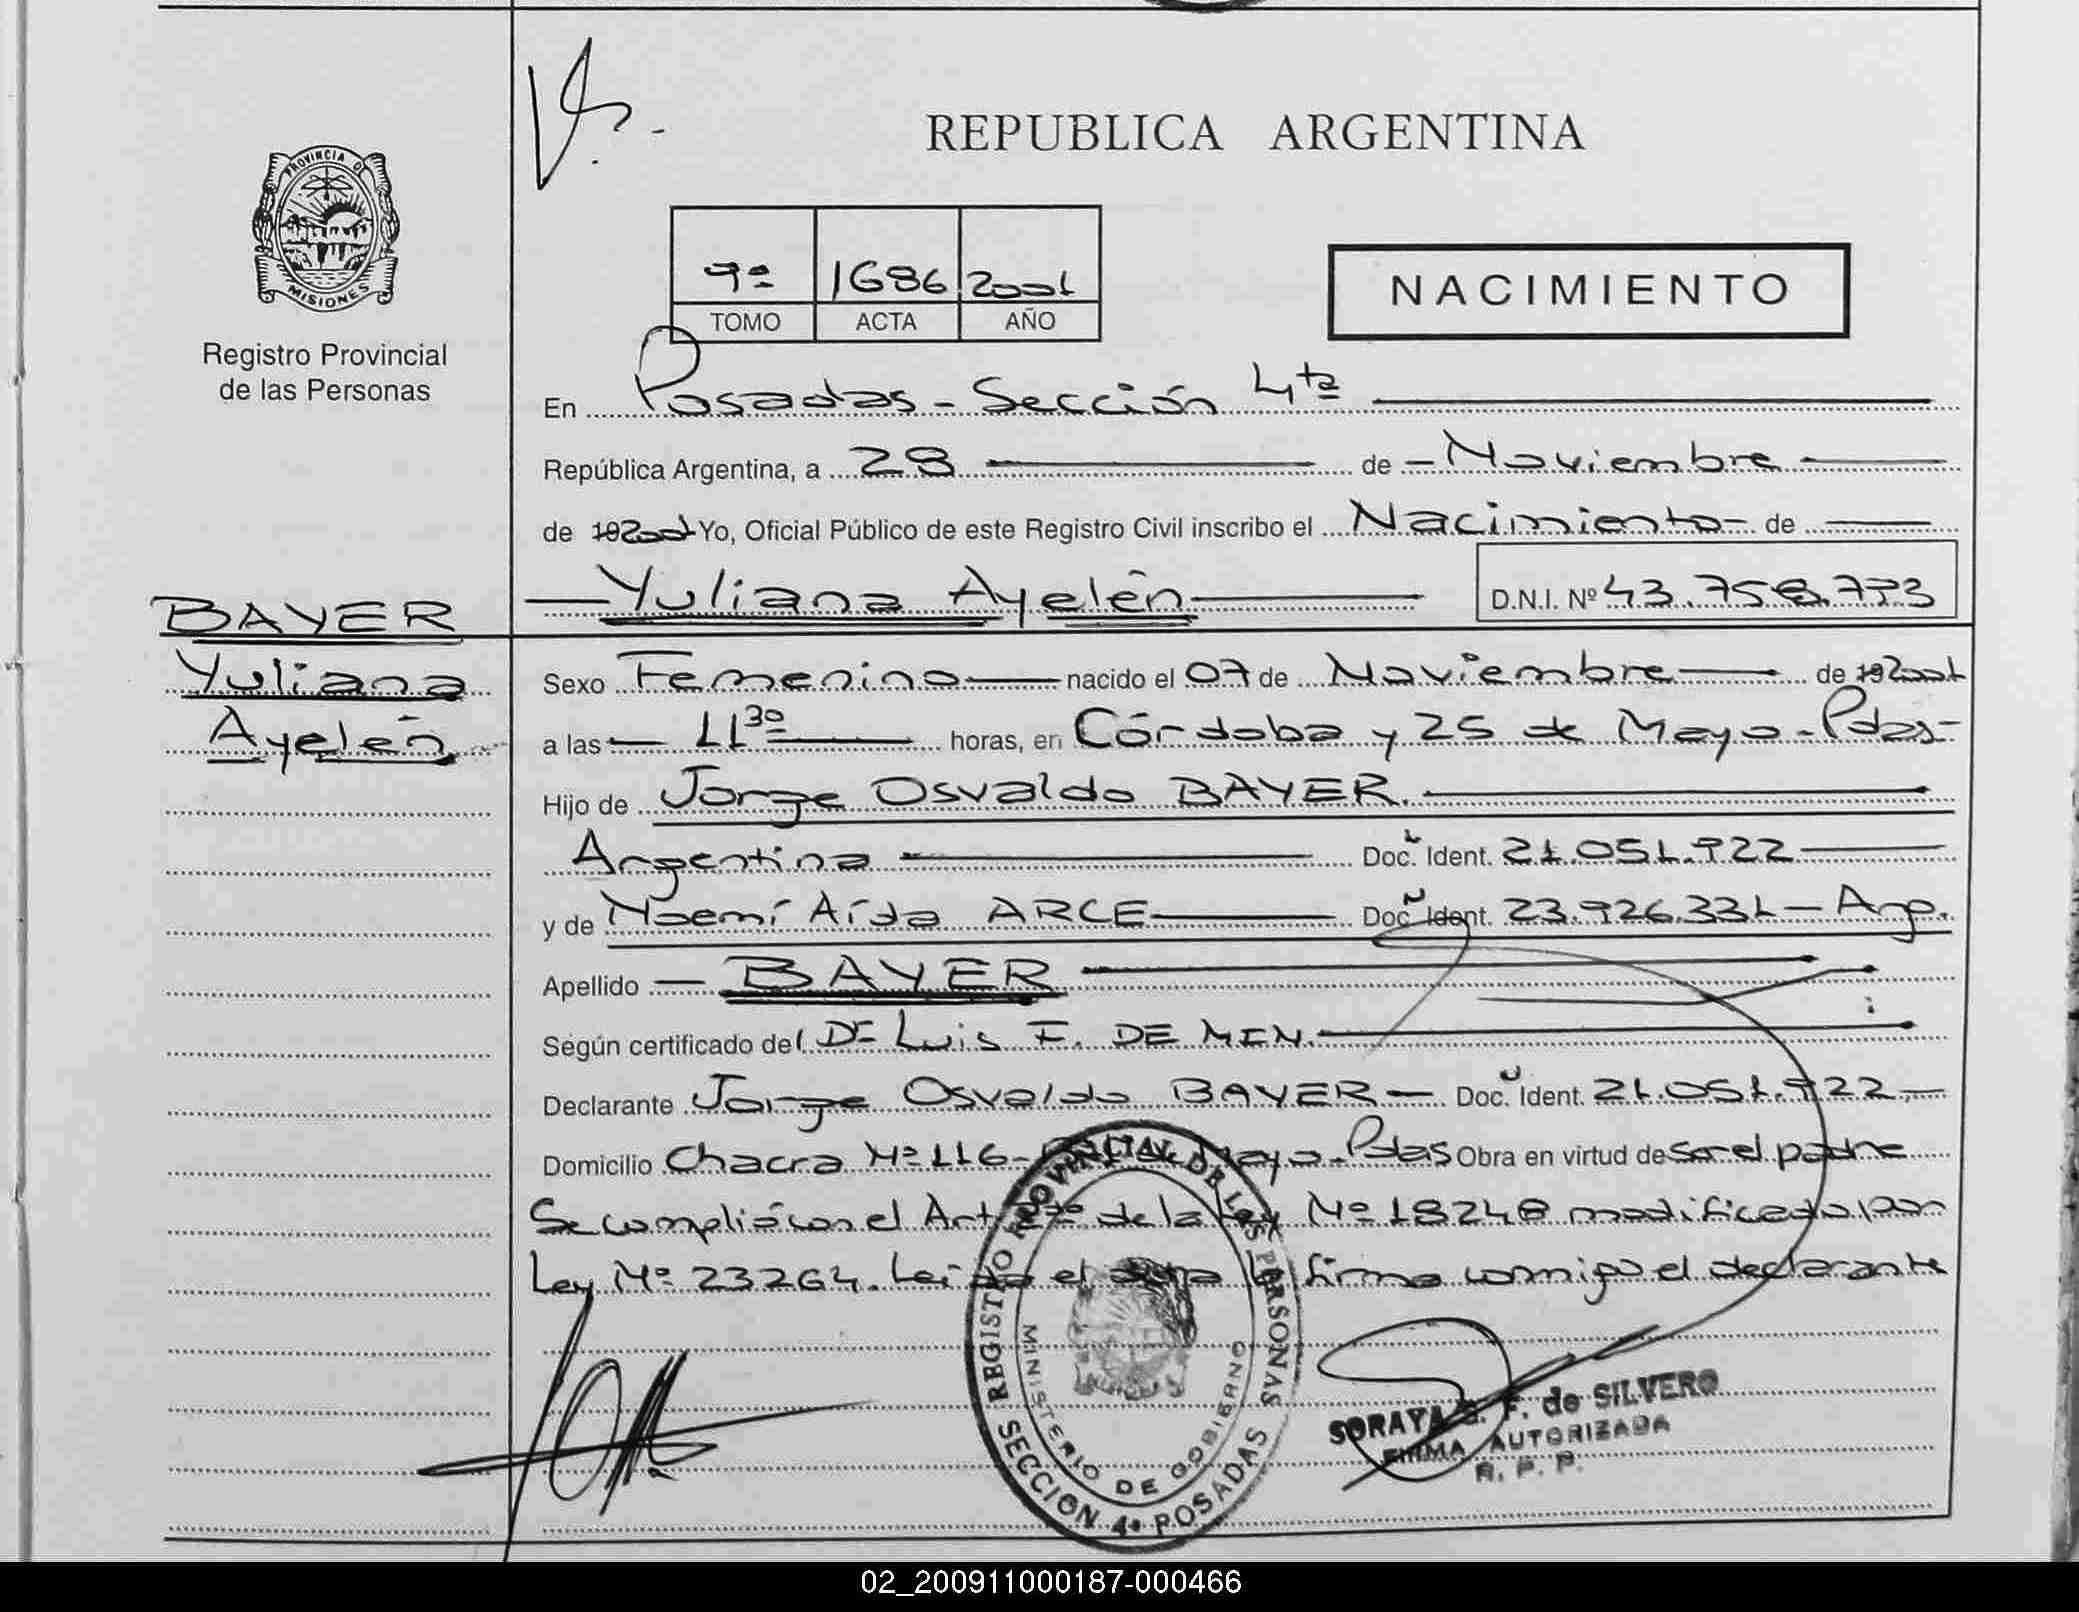 REPUBLICA ARGENTINA
PROVINCIA DE MISIONES
Registro Provincial
de las Personas
9º 1686 2001
TOMO ACTA AÑO
NACIMIENTO
En Posadas - Sección 4ta
República Argentina, a 28 de - Noviembre
de 192001 Yo, Oficial Público de este Registro Civil inscribo el Nacimiento - de
Yuliana Ayelén D.N.I. Nº 43.758.773
BAYER
Yuliana
Ayelén
Sexo Femenino nacido el 07 de Noviembre de 192001
a las 11 30 horas, en Córdoba y 25 de Mayo - Pdas -
Hijo de Jorge Osvaldo BAYER.
Argentina Doc. Ident. 21.051.922
y de Noemí Aída ARCE Doc. Ident. 23.926.331 - Arg.
Apellido BAYER
Según certificado del Dr Luis F. DE MEN.
Declarante Jorge Osvaldo BAYER - Doc. Ident. 21.051.922.-
Domicilio Chacra Nº 116 - Mayo - Pdas Obra en virtud de ser el padre
Se cumplió con el Art de la Ley Nº 18248 modificado por
Ley Nº 23264. Leida el acta la firma conmigo el declarante
REGISTRO PROVINCIAL DE LAS PERSONAS
MINISTERIO DE GOBIERNO
SECCION 4ª POSADAS
SORAYA F. de SILVERO
FIRMA AUTORIZADA
R. P. P.
02_200911000187-000466